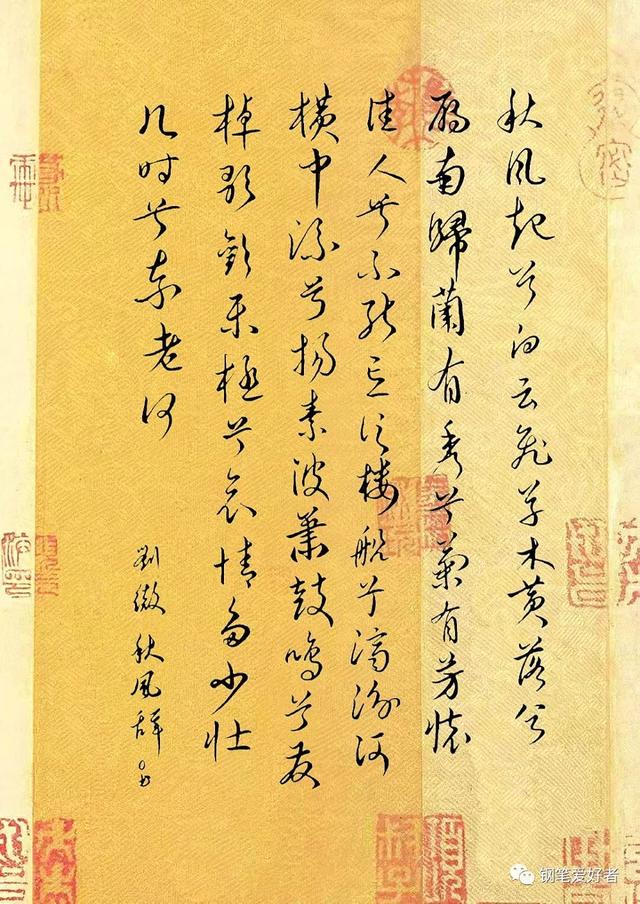 秋风起兮白云飛草木黄落兮
雁南归蘭有秀兮菊有芳怀
佳人兮不能忘泛楼船兮济汾河
横中流兮扬素波箫鼓鸣兮发
棹歌欢乐极兮哀情多少壮
几时兮奈老何
刘徹秋风辞
钢笔爱好者